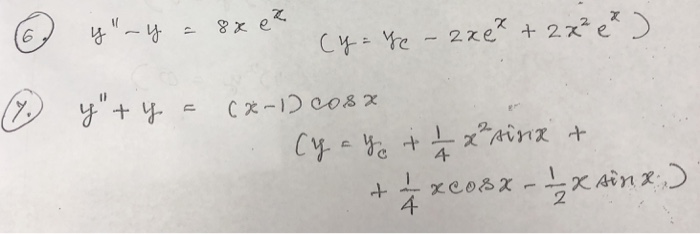 6. y'' - y = 8x eˣ (y = y_c - 2xeˣ + 2x²eˣ)
7. y'' + y = (x-1) cosx
(y = y_c + 1/4 x² sinx +
+ 1/4 x cosx - 1/2 x sinx)